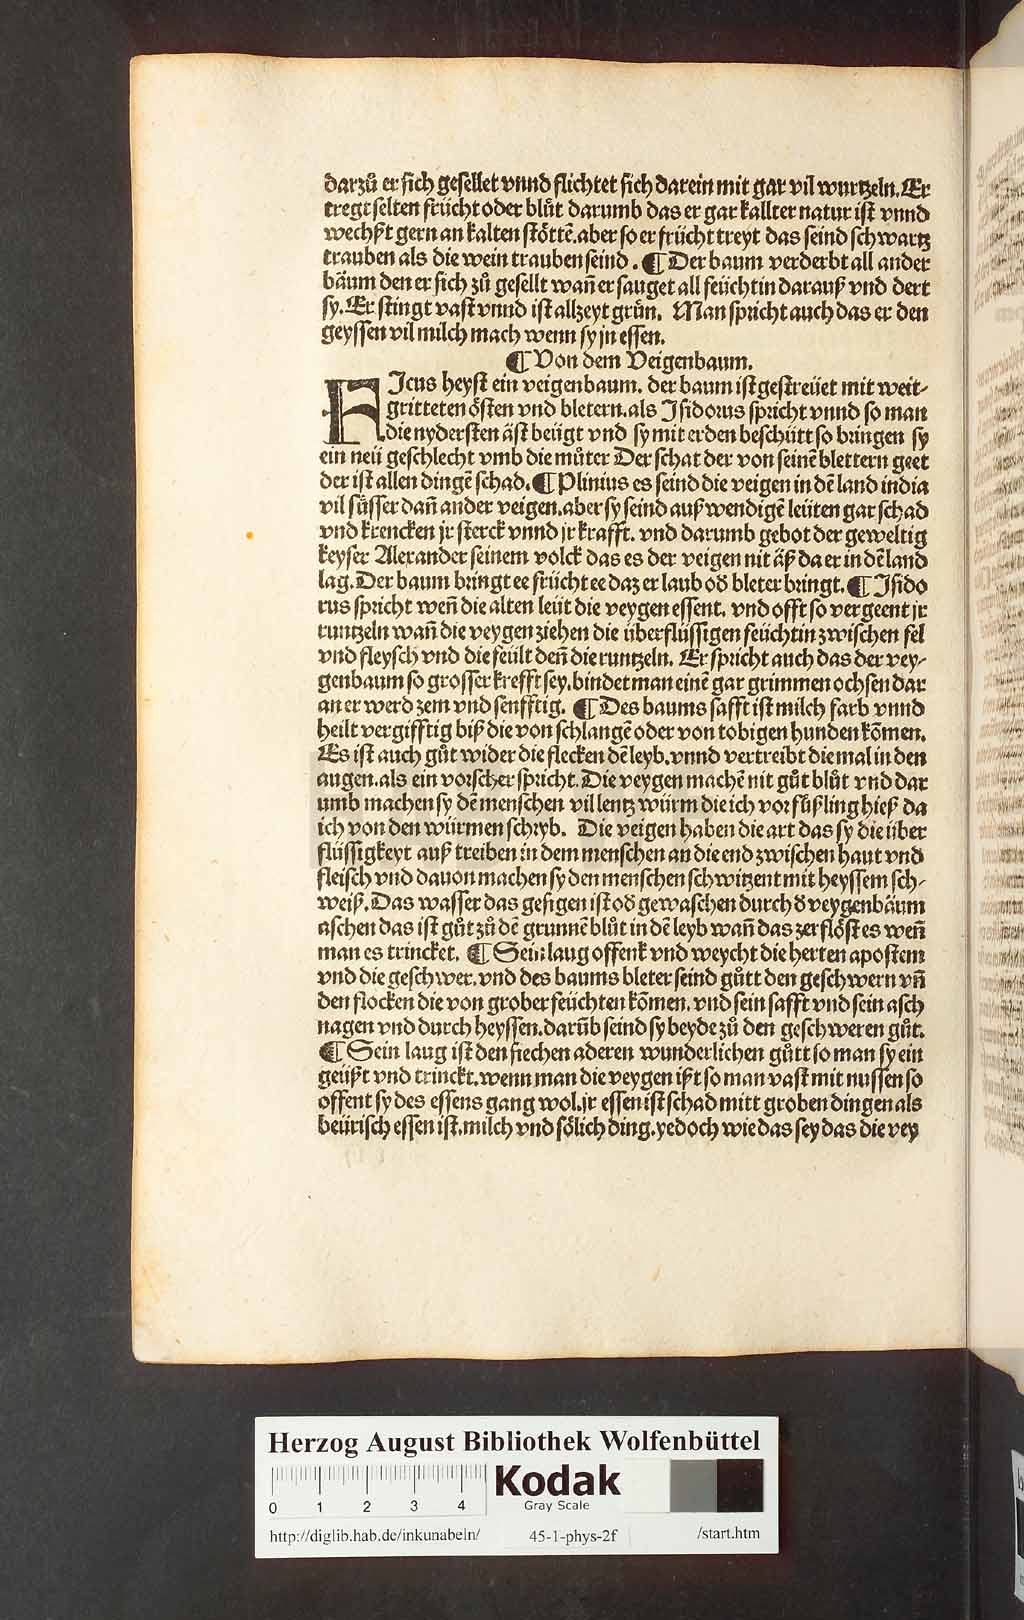 darzů er sich gesellet vnnd flichtet sich darein mit gar vil wurtzeln. Er
tregt selten frücht oder blůt darumb das er gar kallter natur ist vnnd
wechßt gern an kalten stöttē. aber so er frücht treyt das seind schwartz
trauben als die wein trauben seind. ¶ Der baum verderbt all ander
bäum den er sich zů gesellt wañ er sauget all feüchtin darauß vnd dert
sy. Er stingt vast vnnd ist allzeyt grůn. Man spricht auch das er den
geyssen vil milch mach wenn sy jn essen.
¶ Von dem Veigenbaum.
FIcus heyst ein veigenbaum. der baum ist gestreüet mit weit-
gritteten össten vnd bletern. als Isidorus spricht vnnd so man
die nydersten äst beügt vnd sy mit erden beschütt so bringen sy
ein neü geschlecht vmb die můter Der schat der von seinē blettern geet
der ist allen dingē schad. ¶ Plinius es seind die veigen in dē land india
vil süsser dañ ander veigen. aber sy seind auß wendigē leüten gar schad
vnd krencken jr sterck vnnd jr krafft. vnd darumb gebot der geweltig
keyser Alexander seinem volck das es der veigen nit äß da er in dē land
lag. Der baum bringt ee frücht ee daz er laub od bleter bringt. ¶ Isido
rus spricht weñ die alten leüt die veygen essent. vnd offt so vergeent jr
runtzeln wañ die veygen ziehen die überflüssigen feüchtin zwischen fel
vnd fleysch vnd die feült deñ die runtzeln. Er spricht auch das der vey-
genbaum so grosser krefft sey. bindet man einē gar grimmen ochsen dar
an er werd zem vnd senfftig. ¶ Des baums safft ist milch farb vnnd
heilt vergifftig biß die von schlangē oder von tobigen hunden kōmen.
Es ist auch gůt wider die flecken dē leyb. vnnd vertreibt die mal in den
augen. als ein vorscher spricht. Die veygen machē nit gůt blůt vnd dar
umb machen sy dē menschen vil lentz würm die ich vor füßling hieß da
ich von den würmen schryb. Die veigen haben die art das sy die über
flüssigkeyt auß treiben in dem menschen an die end zwischen haut vnd
fleisch vnd dauon machen sy den menschen schwitzent mit heyssem sch-
weiß. Das wasser das gesigen ist od gewaschen durch d veygenbäum
aschen das ist gůt zů dē grunnē blůt in dē leyb wañ das zerflöst es weñ
man es trincket. ¶ Sein laug offent vnd weycht die herten apostem
vnd die geschwer. vnd des baums bleter seind gůtt den geschwern vñ
den flocken die von grober feüchten kōmen. vnd sein safft vnd sein asch
nagen vnd durch heyssen. darūb seind sy beyde zů den geschweren gůt.
¶ Sein laug ist den siechen aderen wunderlichen gůtt so man sy ein
geüßt vnd trinckt. wenn man die veygen ißt so man vast mit nussen so
offent sy des essens gang wol. jr essen ist schad mitt groben dingen als
beürisch essen ist. milch vnd sölich ding. yedoch wie das sey das die vey
Herzog August Bibliothek Wolfenbüttel
0 1 2 3 4
Kodak
Gray Scale
http://diglib.hab.de/inkunabeln/ 45-1-phys-2f /start.htm